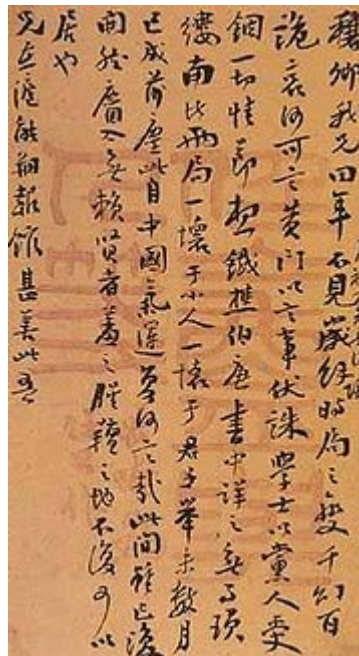 穰卿我兄四年不見歲經時局之變千幻百
詭哀何可言黃門以言事伏誅學士以黨人受
錮一切情節想鐵樵伯唐書中詳之無事瑣
縷南北兩局一壞于小人一懷于君子舉未數月
已成前塵此自中國氣運英何言哉此間雖已復
開然麕入無賴賢者羞之腥羶之地不復可以
居也
兄在滬能創報館甚善此吾